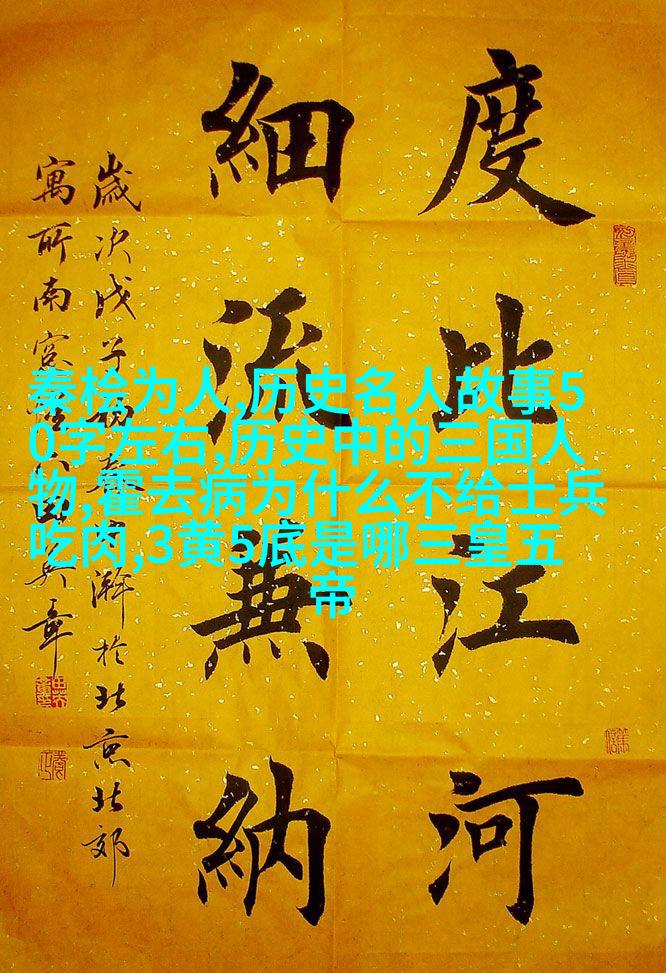 度比江河
細流兼納
歲次戊子初於北京北郊
寓所南章
秦桧为人,历史名人故事5
0字左右,历史中的三国人
物,霍去病为什么不给士兵
吃肉,3黄5底是哪三皇五
帝